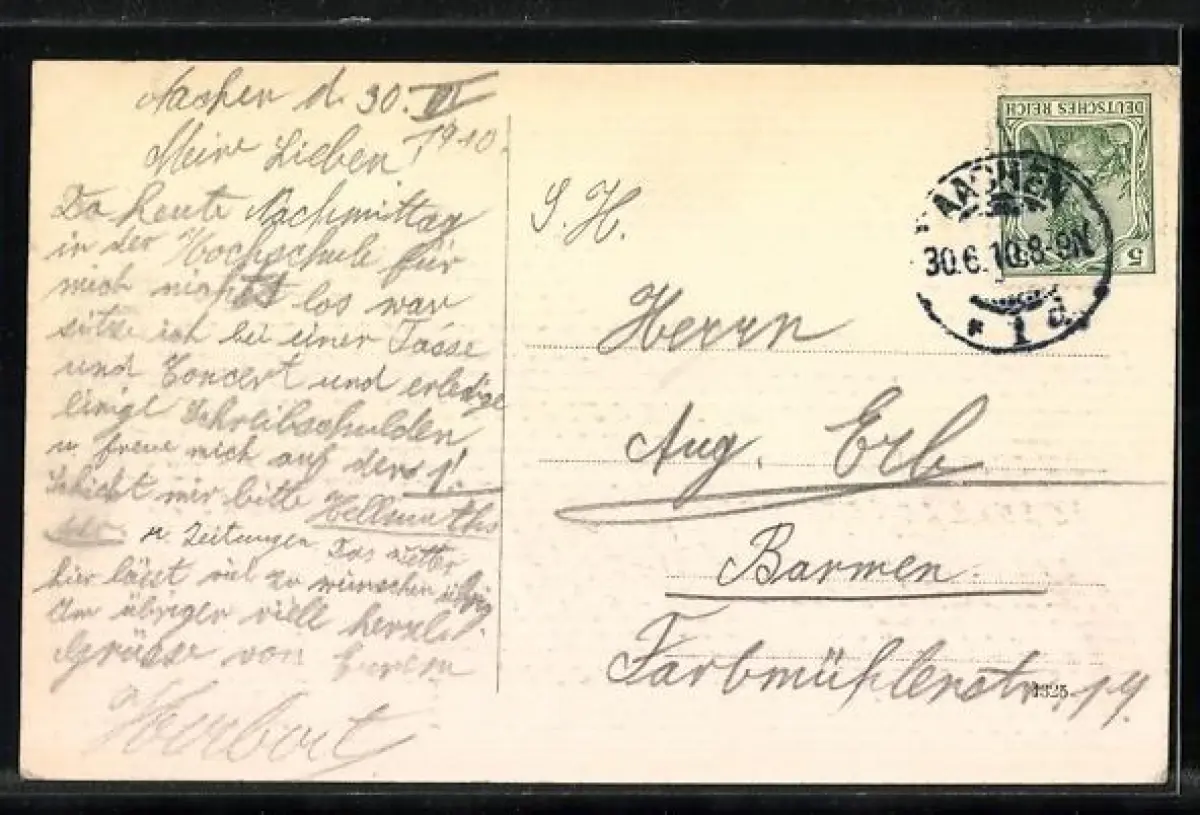 Aachen d. 30. VI
1910.
Meine Lieben!
Da heute Nachmittag
in der Hochschule für
mich nichts los war
sitze ich bei einer Tasse
und Concert und erledige
einige Schreibschulden
u freue mich auf den 1!
Schickt mir bitte Hellmuths
u Zeitungen Das Wetter
hier lässt viel zu wünschen übrig
Im übrigen viele herzl.
Grüsse von Eurem
Herbert
S. H.
Herrn
Aug. Erb
Barmen.
Farbmühlenstr. 19.
1325
DEUTSCHES REICH
5
AACHEN
30.6.10.8-9N
* 1 d.